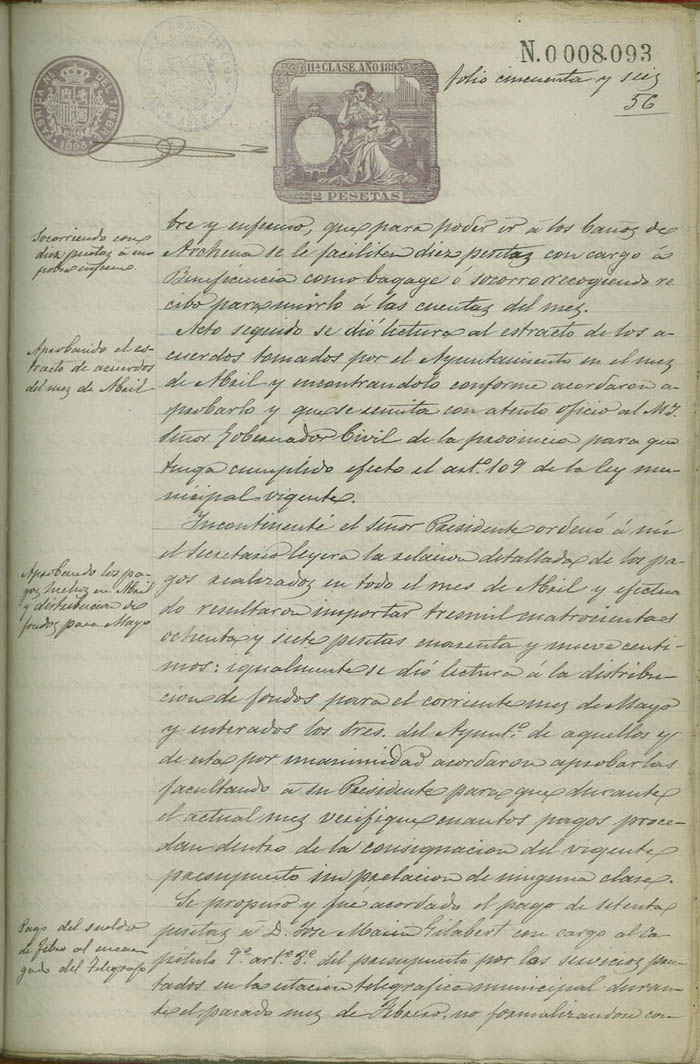 N.0008.093
folio cincuenta y seis
56
FABRICA NL. DEL TIMBRE
1893
11ª CLASE. AÑO 1893
2 PESETAS
Socorriendo con
diez pesetas á un
pobre enfermo.
bre y enfermo, que para poder ir á los baños de
Archena se le faciliten diez pesetas con cargo á
Beneficencia como bagage ó socorro recogiendo re
cibo para unirlo á las cuentas del mes.
Aprobando el es-
tracto de acuerdos
del mes de Abril
Acto seguido se dió lectura al estracto de los a-
cuerdos tomados por el Ayuntamiento en el mes
de Abril y encontrandolo conforme acordaron a-
probarlo y que se remita con atento oficio al M. I.
Señor Gobernador Civil de la provincia para que
tenga cumplido efecto el artº. 109 de la ley mu-
nicipal vigente.
Aprobando los pa-
gos hechos en Abril
y distribucion de
fondos para Mayo
Incontinenti el señor Presidente ordenó á mi
el Secretario leyera la relacion detallada de los pa-
gos realizados en todo el mes de Abril y efectua
do resultaron importar tres mil cuatrocientas
ochenta y siete pesetas cuarenta y nueve centi-
mos: igualmente se dió lectura á la distribu-
cion de fondos para el corriente mes de Mayo
y enterados los sres. del Ayuntº. de aquellos y
de esta por unanimidad acordaron aprobarlas
facultando á su Presidente para que durante
el actual mes verifique cuantos pagos proce-
dan dentro de la consignacion del vigente
presupuesto sin prelacion de ninguna clase.
Pago del sueldo
de Febro al encar
gado del Telegrafo
Se propuso y fué acordado el pago de setenta
pesetas á D. Jose Maria Gilabert con cargo al ca
pítulo 9º artº. 8º. del presupuesto por los servicios pres-
tados en la estacion telegrafica municipal duran-
te el pasado mes de Febrero, no formalizandose con